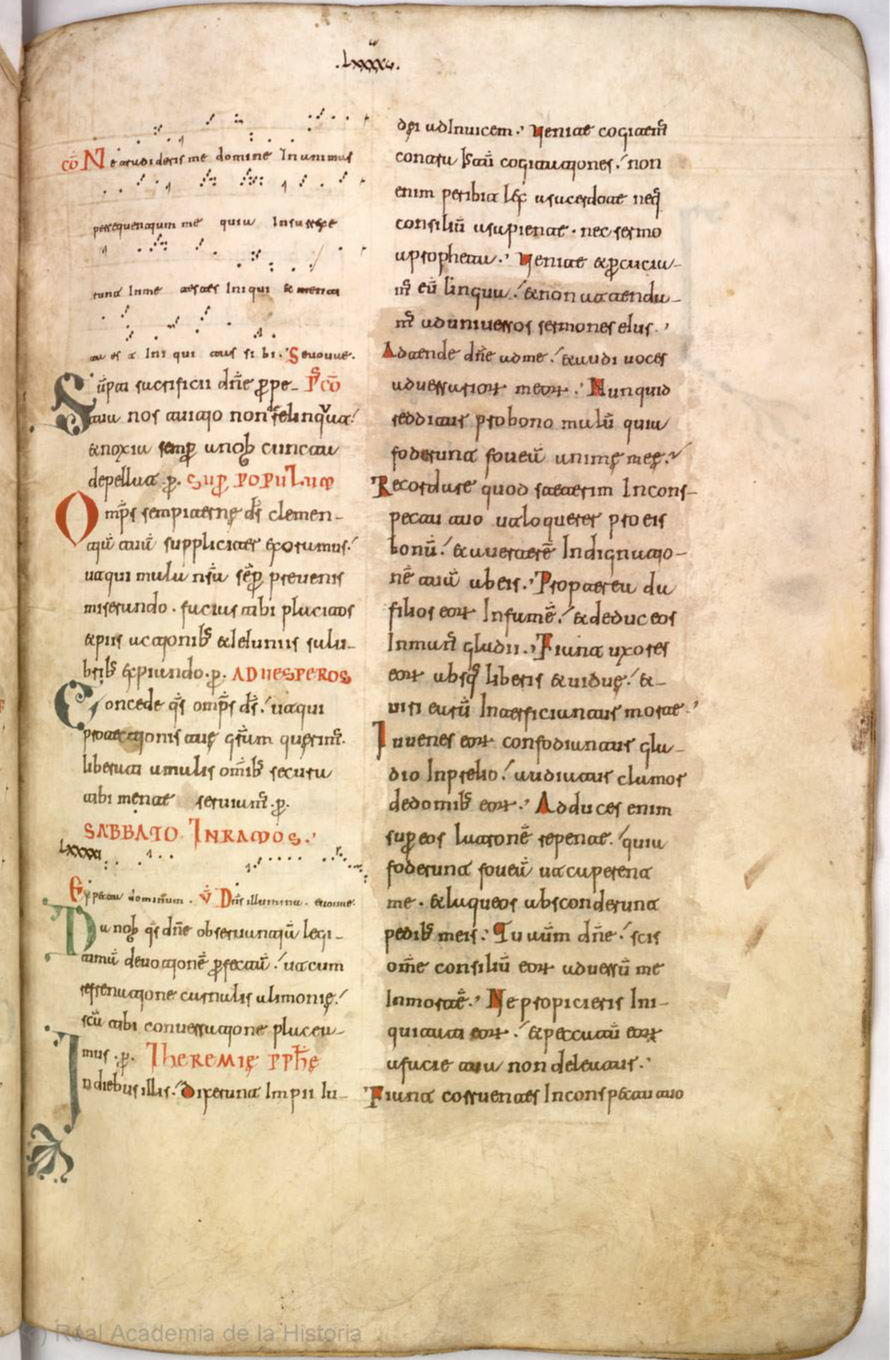 .lxxxv.
cō Ne tradideris me domine In animas
persequentium me quia Insurrexe
runt In me testes Iniqui & menti
ta es t Ini qui tas si bi. Seuouae.
Sūpti sacrificii dñe ꝑpe- Pꝰcō
tua nos tuitio non relinquat
& noxia semꝑ a nobˢ cuncta
depellat. ꝑ. SUꝐ POPULUM
Omps sempiternę ds̄ clemen-
tiā tuā suppliciter exoramus.
ut qui mala nr̄a sēꝑ preuenis
miserando. facias tibi placitos
& piis actionibˢ & Ieiuniis salu-
bribˢ expiando. ꝑ. AD UESPEROS
Concede qs̄ omps̄ ds̄. ut qui
protectionis tuę gr̄am querimꝰ.
liberati a malis omībˢ secura
tibi mente seruiamꝰ. ꝑ.
SABBATO IN RAMOS.
lxxxxi
Expecta dominum. V̄ Dn̄s illumina. euouae.
Da nobˢ qs̄ dñe obseruantiā legi-
timā deuotionē ꝑfectā. ut cum
refrenatione carnalis alimonię.
scā tibi conuersatione placea-
mus. ꝑ. IHEREMIĘ PPHE
In diebus illis. Dixerunt Impii Iu-
dei ad Inuicem. Uenite cogitemꝰ
contra Iustū cogitationes. non
enim peribit lex a sacerdote neqꝫ
consiliū a sapiente. nec sermo
a propheta. Uenite & ꝑcutia-
mꝰ eū lingua. & non attenda-
mꝰ ad uniuersos sermones eius.
Adtende dñe ad me. & audi uoces
aduersarioꝝ meoꝝ. Nunquid
redditur pro bono malū quia
foderunt foueā animę meę.
Recordare quod steterim In cons-
pectu tuo ut loquerer pro eis
bonū. & auerterē Indignatio-
nē tuā ab eis. Propterea da
filios eoꝝ In famē. & deduc eos
In manꝰ gladii. Fiant uxores
eoꝝ absqꝫ liberis & uiduę. & -
uiri earū Interficiantur morte.
Iuuenes eoꝝ confodiantur gla-
dio In prelio. audiatur clamor
de domibˢ eoꝝ. Adduces enim
suꝑ eos latronē repente. quia
foderunt foueā ut caperent
me. & laqueos absconderunt
pedibˢ meis. Tu autē dñe. scis
omē consiliū eoꝝ aduersū me
In mortē. Ne propicieris Ini-
quitati eoꝝ. & peccatū eoꝝ
a facie tua non deleatur.
Fiant corruentes In conspectu tuo
(c) Real Academia de la Historia